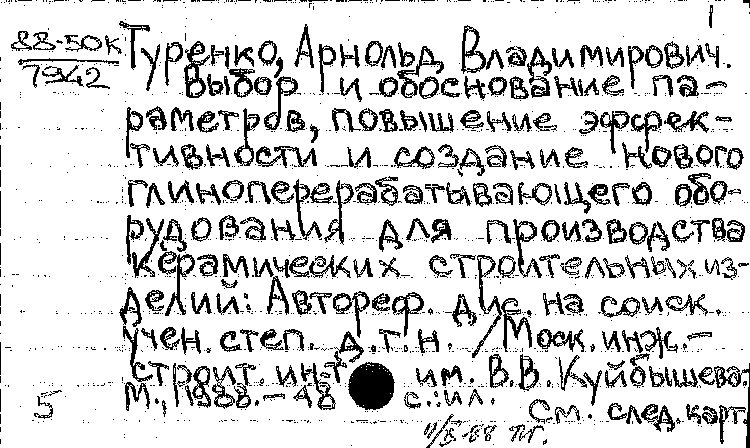 1
88-50К Туренко, Арнольд Владимирович.
7942 Выбор и обоснование па-
раметров, повышение эффек-
тивности и создание нового
глиноперерабатывающего обо-
рудования для производства
керамических строительных из-
делий: Автореф. дис. на соиск.
учен. степ. д.т.н. /Моск. инж.-
строит. ин-т им. В.В. Куйбышева.
М., 1988. - 48 с.: ил.
5 См. след. карт.